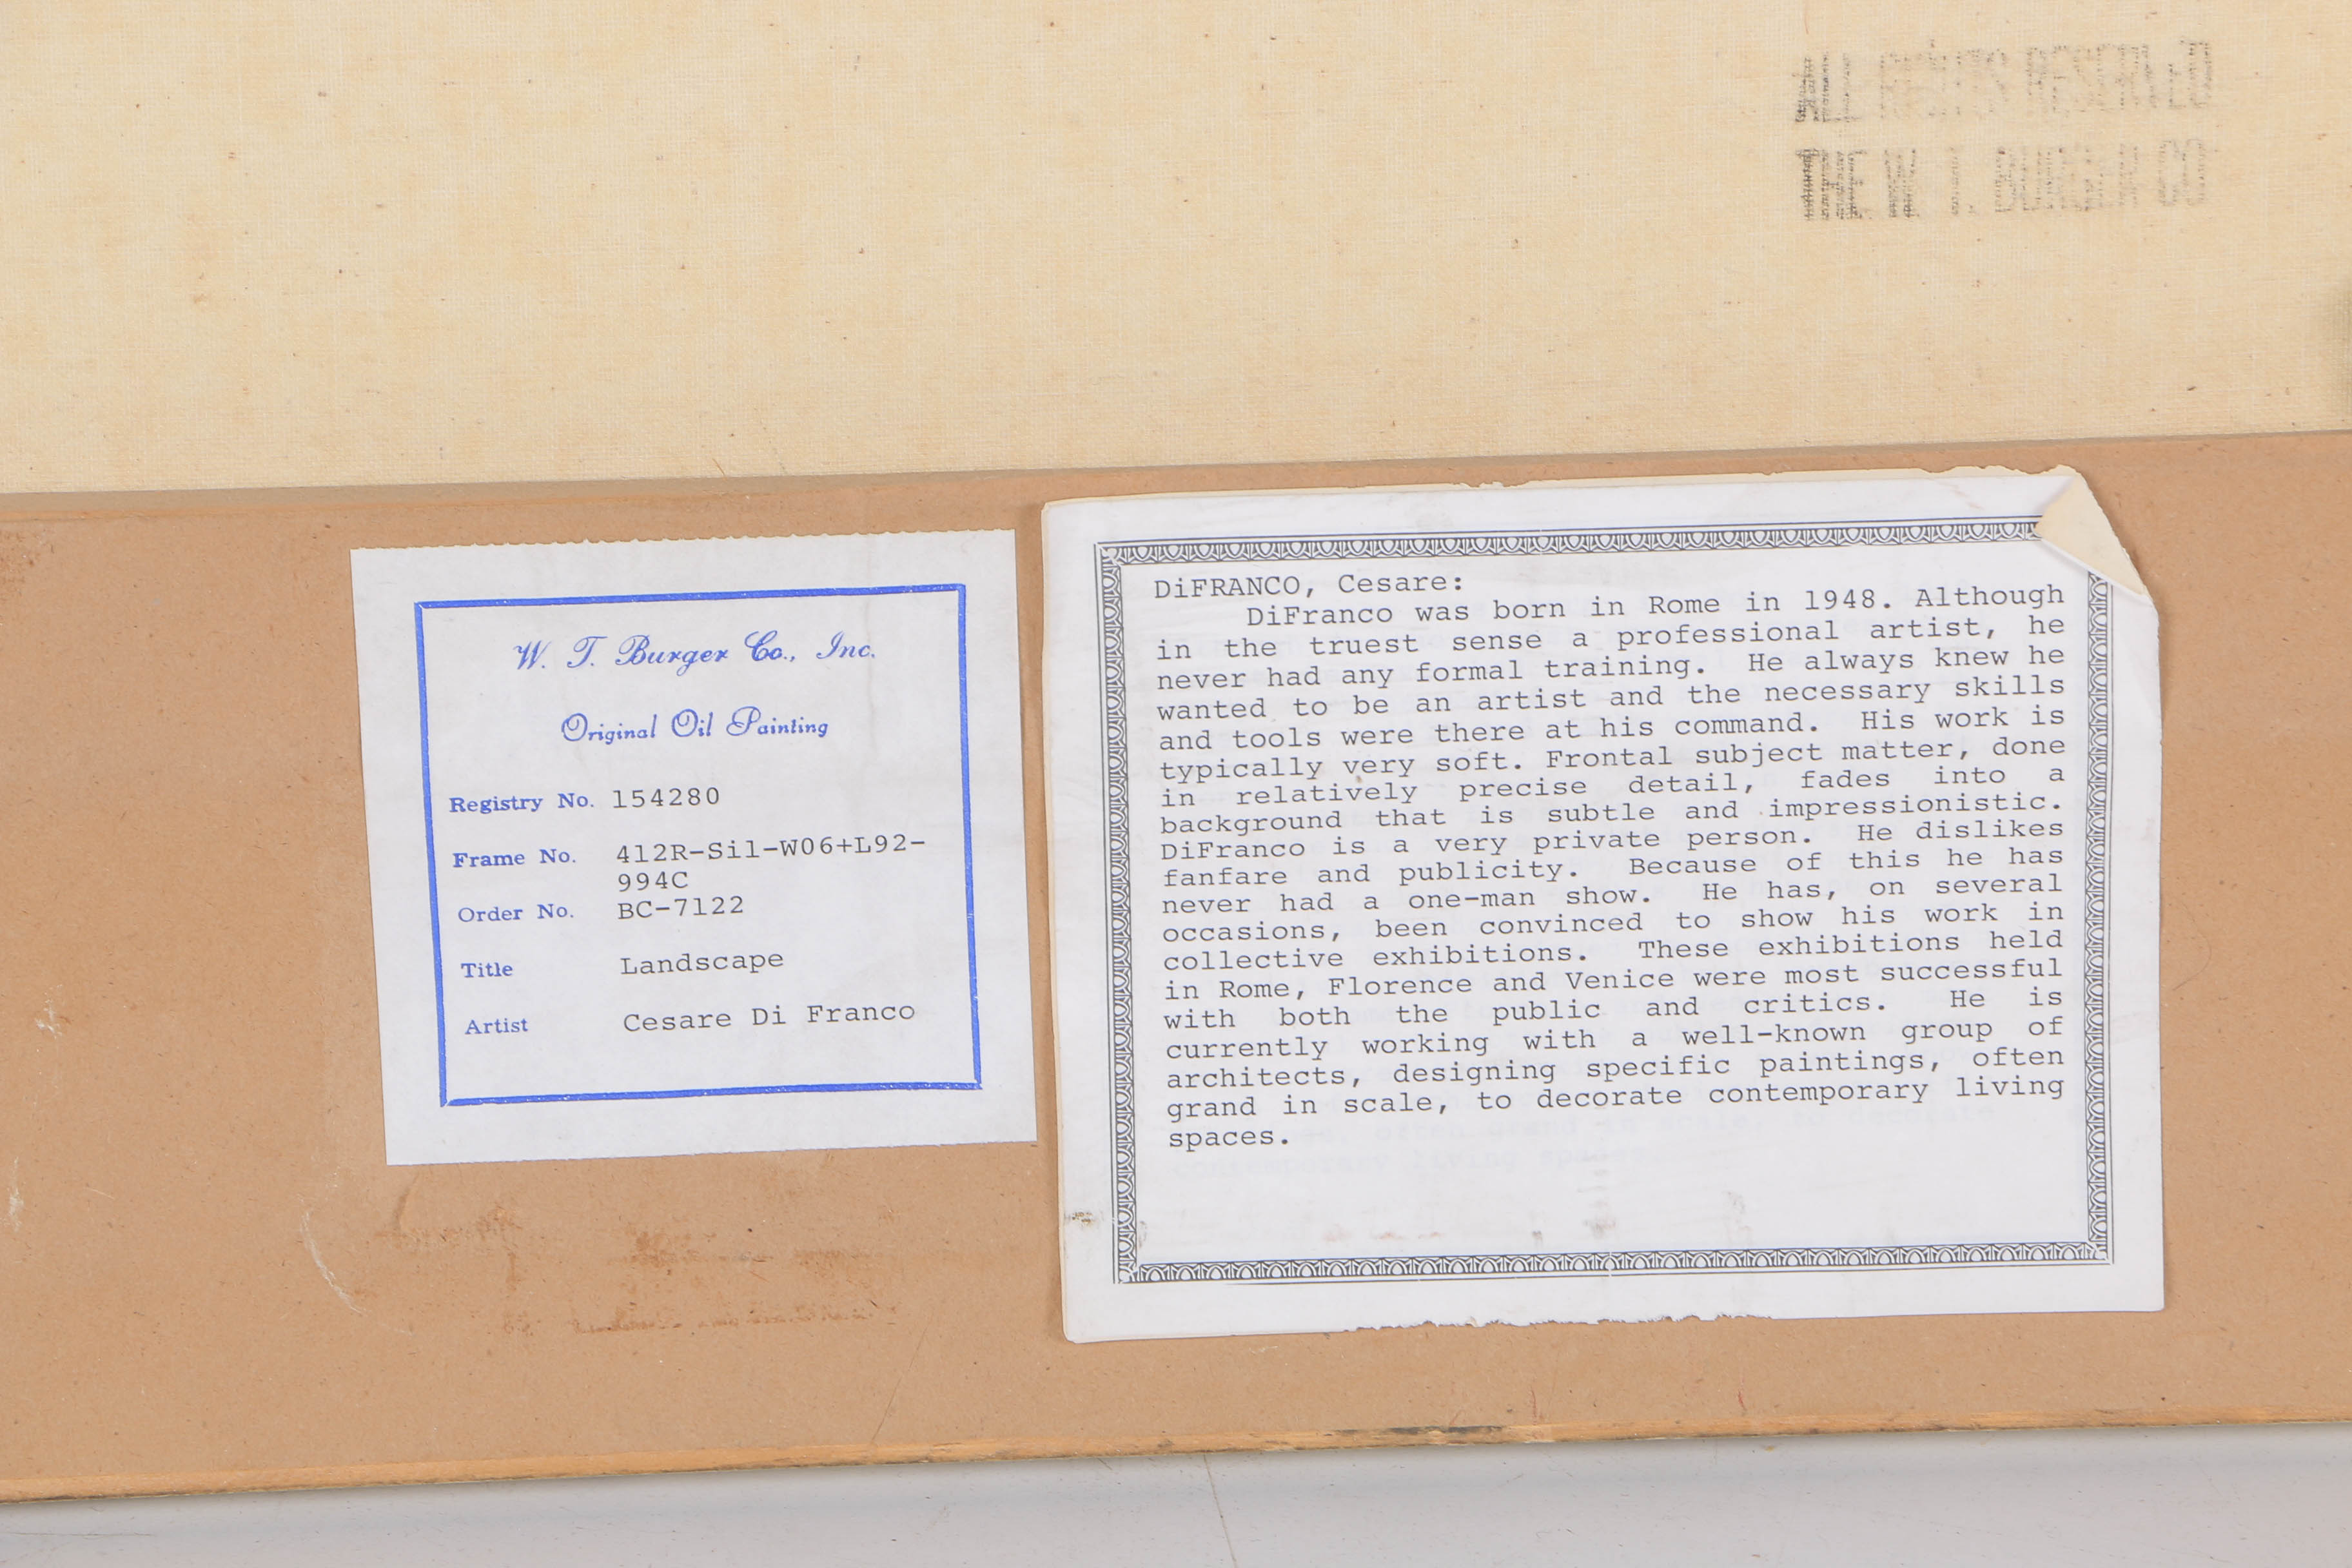 ALL RIGHTS RESERVED
W. T. BURGER CO
W. T. Burger Co., Inc.
Original Oil Painting
Registry No. 154280
Frame No. 412R-Sil-W06+L92-
994C
Order No. BC-7122
Title Landscape
Artist Cesare Di Franco
DiFRANCO, Cesare:
DiFranco was born in Rome in 1948. Although
in the truest sense a professional artist, he
never had any formal training. He always knew he
wanted to be an artist and the necessary skills
and tools were there at his command. His work is
typically very soft. Frontal subject matter, done
in relatively precise detail, fades into a
background that is subtle and impressionistic.
DiFranco is a very private person. He dislikes
fanfare and publicity. Because of this he has
never had a one-man show. He has, on several
occasions, been convinced to show his work in
collective exhibitions. These exhibitions held
in Rome, Florence and Venice were most successful
with both the public and critics. He is
currently working with a well-known group of
architects, designing specific paintings, often
grand in scale, to decorate contemporary living
spaces.